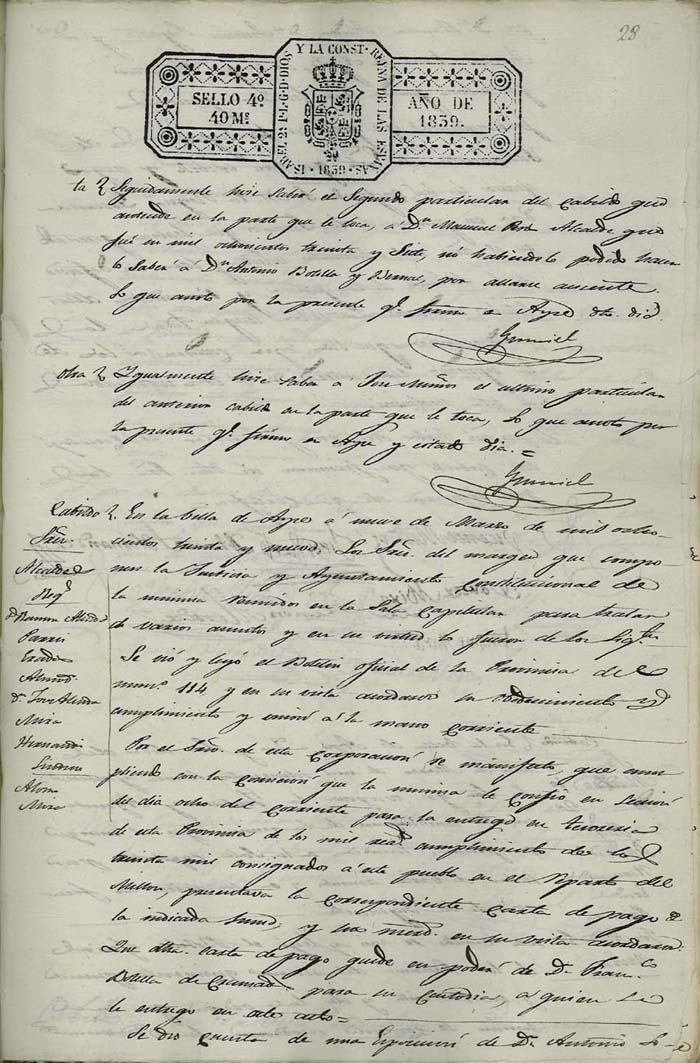 28
ISABEL 2ª P. L. G. D. DIOS Y LA CONST. REYNA DE LAS ESPAÑAS
SELLO 4º
40 Ms
AÑO DE
1839.
1839
ta Seguidamente hice saber el Segundo particular del Cabildo que
antecede en la parte que le toca, a Dn Manuel Alcalde que
fué en mil ochocientos treinta y Siete, no habiendolo podido hacer
lo Saber á Dn Antonio Botella y Bernal, por allarse ausente.
Lo que anoto por la presente qe firmo en Aspe dho. dia
Gumiel
Otra Ygualmente hice saber á Jose Muños el ultimo particular
del anterior cabildo en la parte que le toca, lo que anoto por
la presente qe firmo en Aspe y citado dia. =
Gumiel
Cabildo En la Villa de Aspe á nueve de Marzo de mil ocho-
Sres.
cientos treinta y nueve, Los Sres. del margen que compo-
Alcalde
nen la Justicia y Ayuntamiento Constitucional de
Regs
la misma reunidos en la Sala Capitular para tratar
Dn Ramon Alenda
de varios asuntos y en su virtud lo fueron de los Sigtes
Pavia
Se vió y leyó el Boletin oficial de la Provincia de
Almod
numº 114 y en su vista acordaron su obedecimiento y
Dn Jose Alenda
cumplimiento y unirlo á la mano corriente
Mira
Por el Srio. de esta corporacion se manifestó, que cum
Hernandez
pliendo con la comision que la misma le confió en Sesion
Alonso
del dia ocho del corriente para la entrega en tesoreria
Mira
de esta Provincia de los mil rs cumplimiento de los
treinta mil consignados á este pueblo en el Reparto del
Millon, presentava la correspondiente carta de pago de
la indicada Suma, y sus mrds. en su vista acordaron:
Que dha. carta de pago quede en poder de D. Franco
Botella de para su Custodia, a quien se
le entregó en este acto =
Se dió cuenta de una Exposicion de Dn Antonio